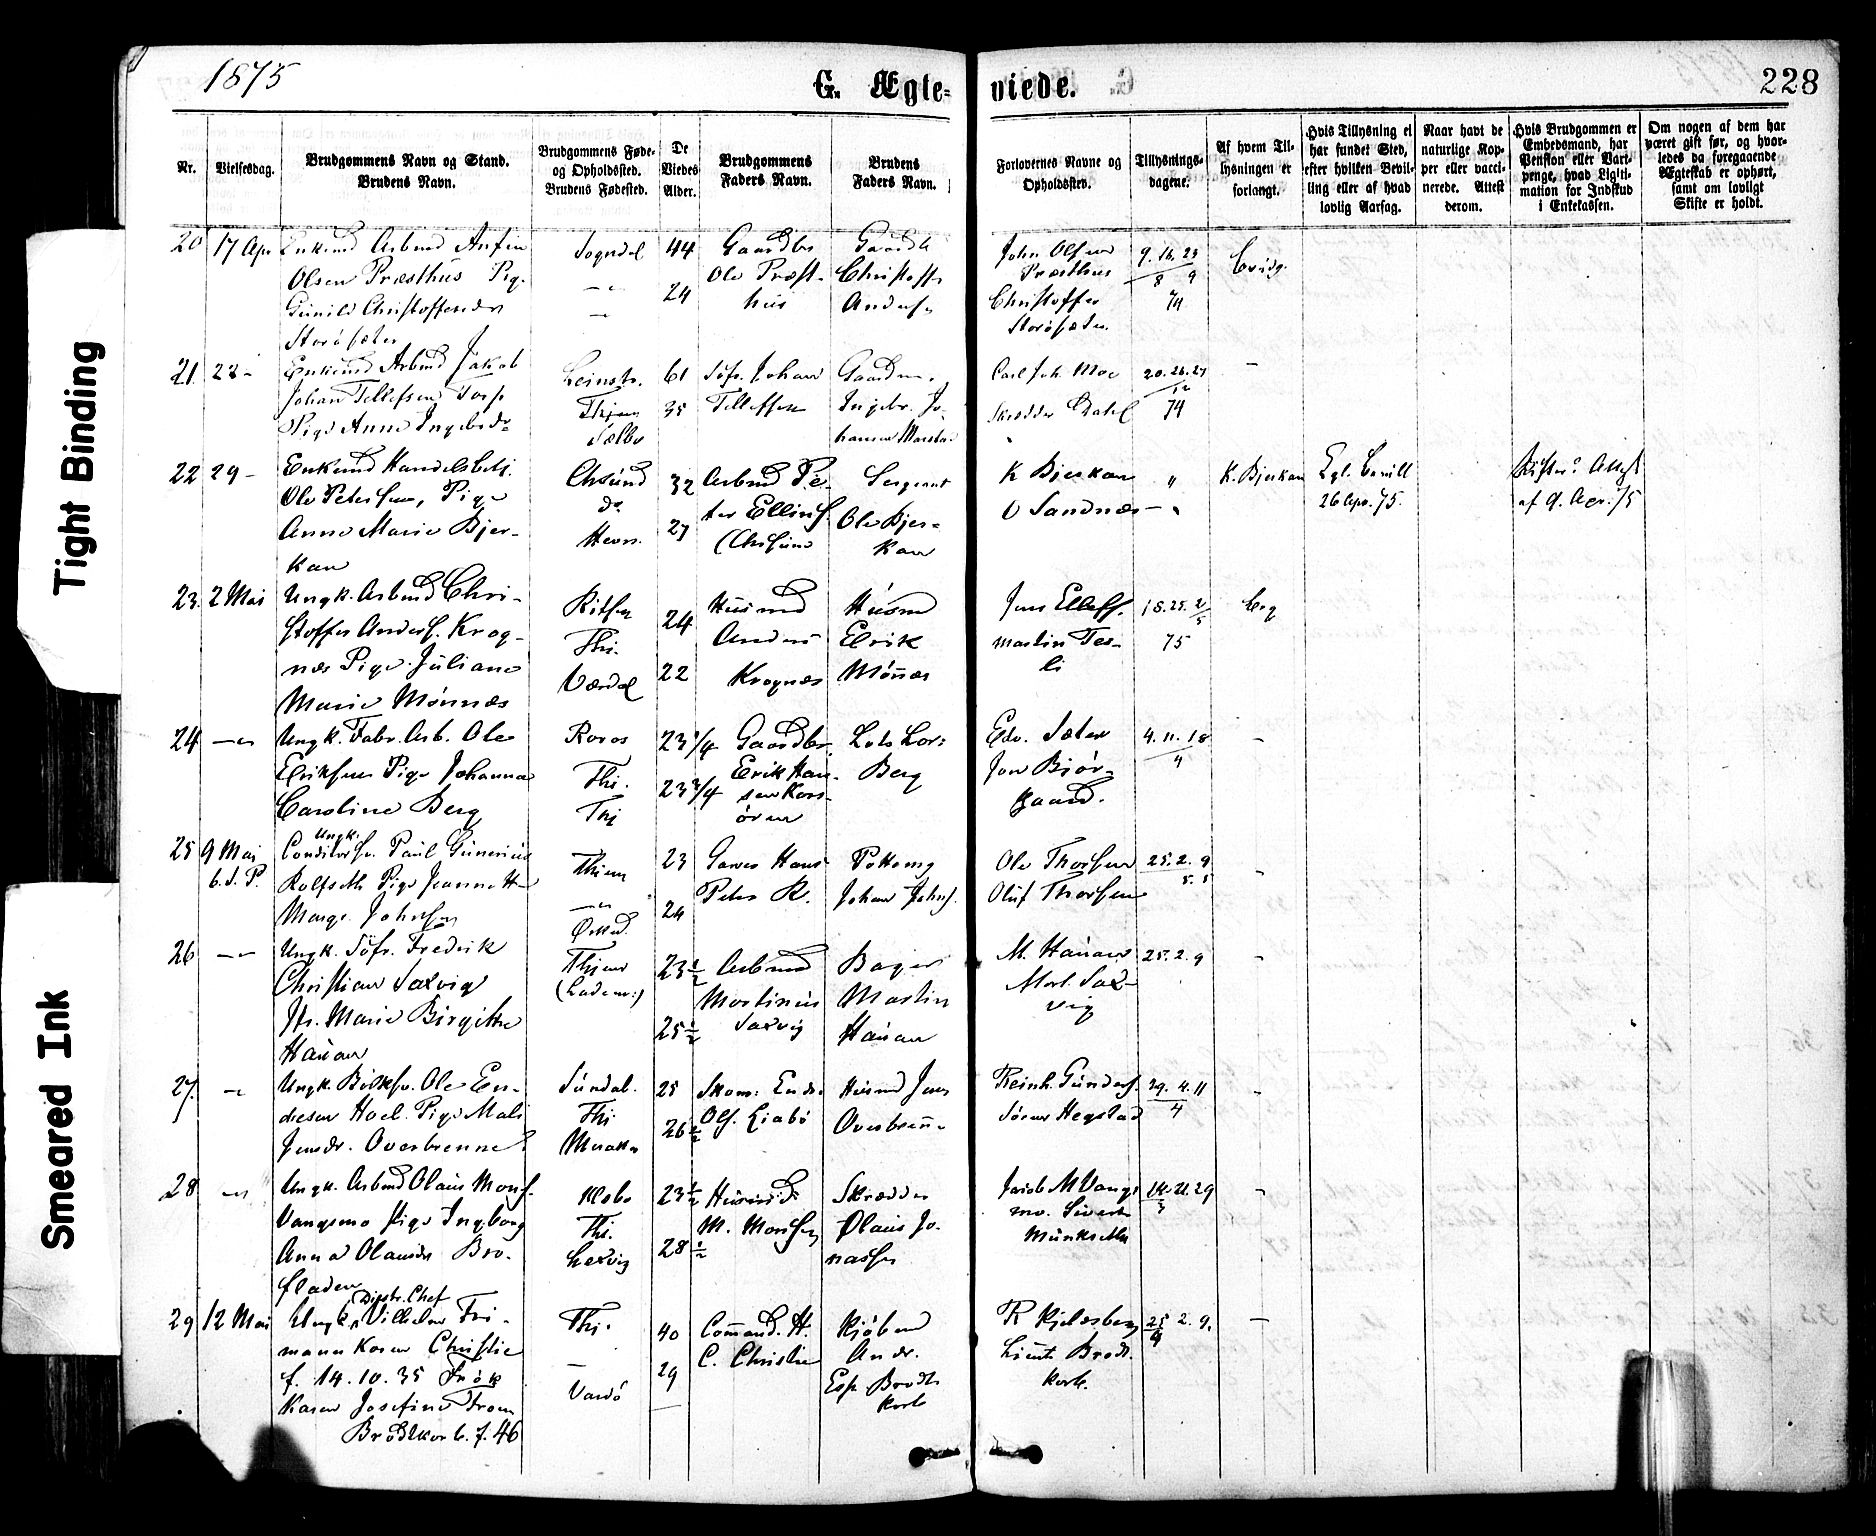 1875
G. Ægte-
viede.
228
Nr.
Vielsesdag.
Brudgommens Navn og Stand.
Brudens Navn.
Brudgommens Føde-
og Opholdssted.
Brudens Fødested.
De
Viedes
Alder.
Brudgommens
Faders Navn.
Brudens
Faders Navn.
Forlovernes Navne og
Opholdssted.
Tillysnings-
dagene.
Af hvem Til-
lysningen er
forlangt.
Hvis Tillysning ei
har fundet Sted,
efter hvilken Bevil-
ling eller af hvad
lovlig Aarsag.
Naar havt de
naturlige Kop-
per eller vacci-
nerede. Attest
derom.
Hvis Brudgommen er
Embedsmand, har
Pension eller Vart-
penge, hvad Ligiti-
mation for Indskud
i Enkekassen.
Om nogen af dem har
været gift før, og hvor-
ledes da foregaaende
Ægteskab er ophørt,
samt om lovligt
Skifte er holdt.
Tight Binding
Smeared Ink
20 17 Apr Enkemd Arbmd Anfin
Olsen Præsthus Pig.
Gunild Christoffersdr
Storøsæter
Sogndal
44
24
Gaardbr
Ole Præst-
hus
Gaardb
Christoff
Anders
John Olsen
Præsthus
Christoffer
Storøsæter
9. 16. 23
8 9
74
21 23 - Enkemd Arbmd Jakob
Johan Tellefsen Torp
Pige Anne Ingebrd
Leinstr.
Thjem
Selbo
61
35
Søfr. Johan
Tellefsen
Gaardm.
Ingebr. Jo-
hansen
Carl Joh. Moe
Skrædder Dahl
20. 26. 27
12
74
22 29 - Enkemd Handelsbetj.
Ole Petersen, Pige
Anne Marie Bjer-
kan
Chsund
do
Hevn.
32
27
Arbmd Pe-
ter Ellins.
Chrsund
Sergeant
Ole Bjer-
kan
K Bjerkan
O Sandnæs
"
K. Bjerkan
Kgl. Bevill
26 Apr. 75.
Skifter. Attest
af 9. Apr. 75
23. 2 Mai Ungk. Arbmd Chri-
stoffer Anders. Krog-
næs Pige Juliane
Marie Mönnæs
Thj.
Værdal
24
22
Husmd
Anders
Krognæs
Husmd
Erik
Mönnæs
Jens Elleffs.
Martin Tes-
li
18. 25. 2/5
75
24 Ungk. Fabr. Arb. Ole
Eriksen Pige Johanna
Caroline Berg
Roros
Thj.
Thj
23 1/4
23 3/4
Gaardbr.
Erik Han-
sen Kors-
ören
Berg
Edv. Sæter
Jon Bjør-
gaard.
4. 11. 18
4
25 9 Mai
Ungk.
Conditorsv. Paul Gunerius
Rolfseth Pige Jeannette
Marge Johnsen
Thjem
23
24
Garver Hans
Peter R.
Johan Johns.
Ole Thorsen
Oluf Thorsen
25. 2. 9
26 Ungk. Söfr. Fredrik
Christian Saxvig
Jfr. Marie Birgitte
Hauan
Thjem
(Lademo)
23 1/2
25 1/2
Arbmd
Martinus
Saxvig
Bager
Martin
Hauan
M. Hauan
Mort. Sax-
vig
25. 2. 9
27. Ungk. Ole En-
dresen Hoel. Pige Mali
Jensdr. Overbrenne
Sundal.
Thj
Meraker
25
26 1/2
Skom. Endr.
Ols. Liabö
Husmd Jens
Overbrenn
Reinh. Gunders.
Sören Hegstad
29. 4. 11
4
28 Ungk. Arbmd Olaus Mons.
Vangsmo Pige Ingeborg
Anna Olausdr Bro-
fladen
Klæbo
Thj.
Lexvig
23 1/2
28 1/2
Husmd
M. Monsen
Skrædder
Olaus Jo-
nassen
Jacob M Vangs
mo. Sivert
Munksæth
14. 21. 29
29 12 Mai Distr. Chef
Ungk. Vilhelm Fri-
mann Koren Christie
f. 14.10.35 Frök
Karen Josefine From
Brodtkorb. f. 46
Thj.
Vardö
40
29
Command. H.
C. Christie
Kjöbmd
Andr.
Esp. Brodt
korb
R Kjelsberg
Brodt-
korb.
25 2. 9.